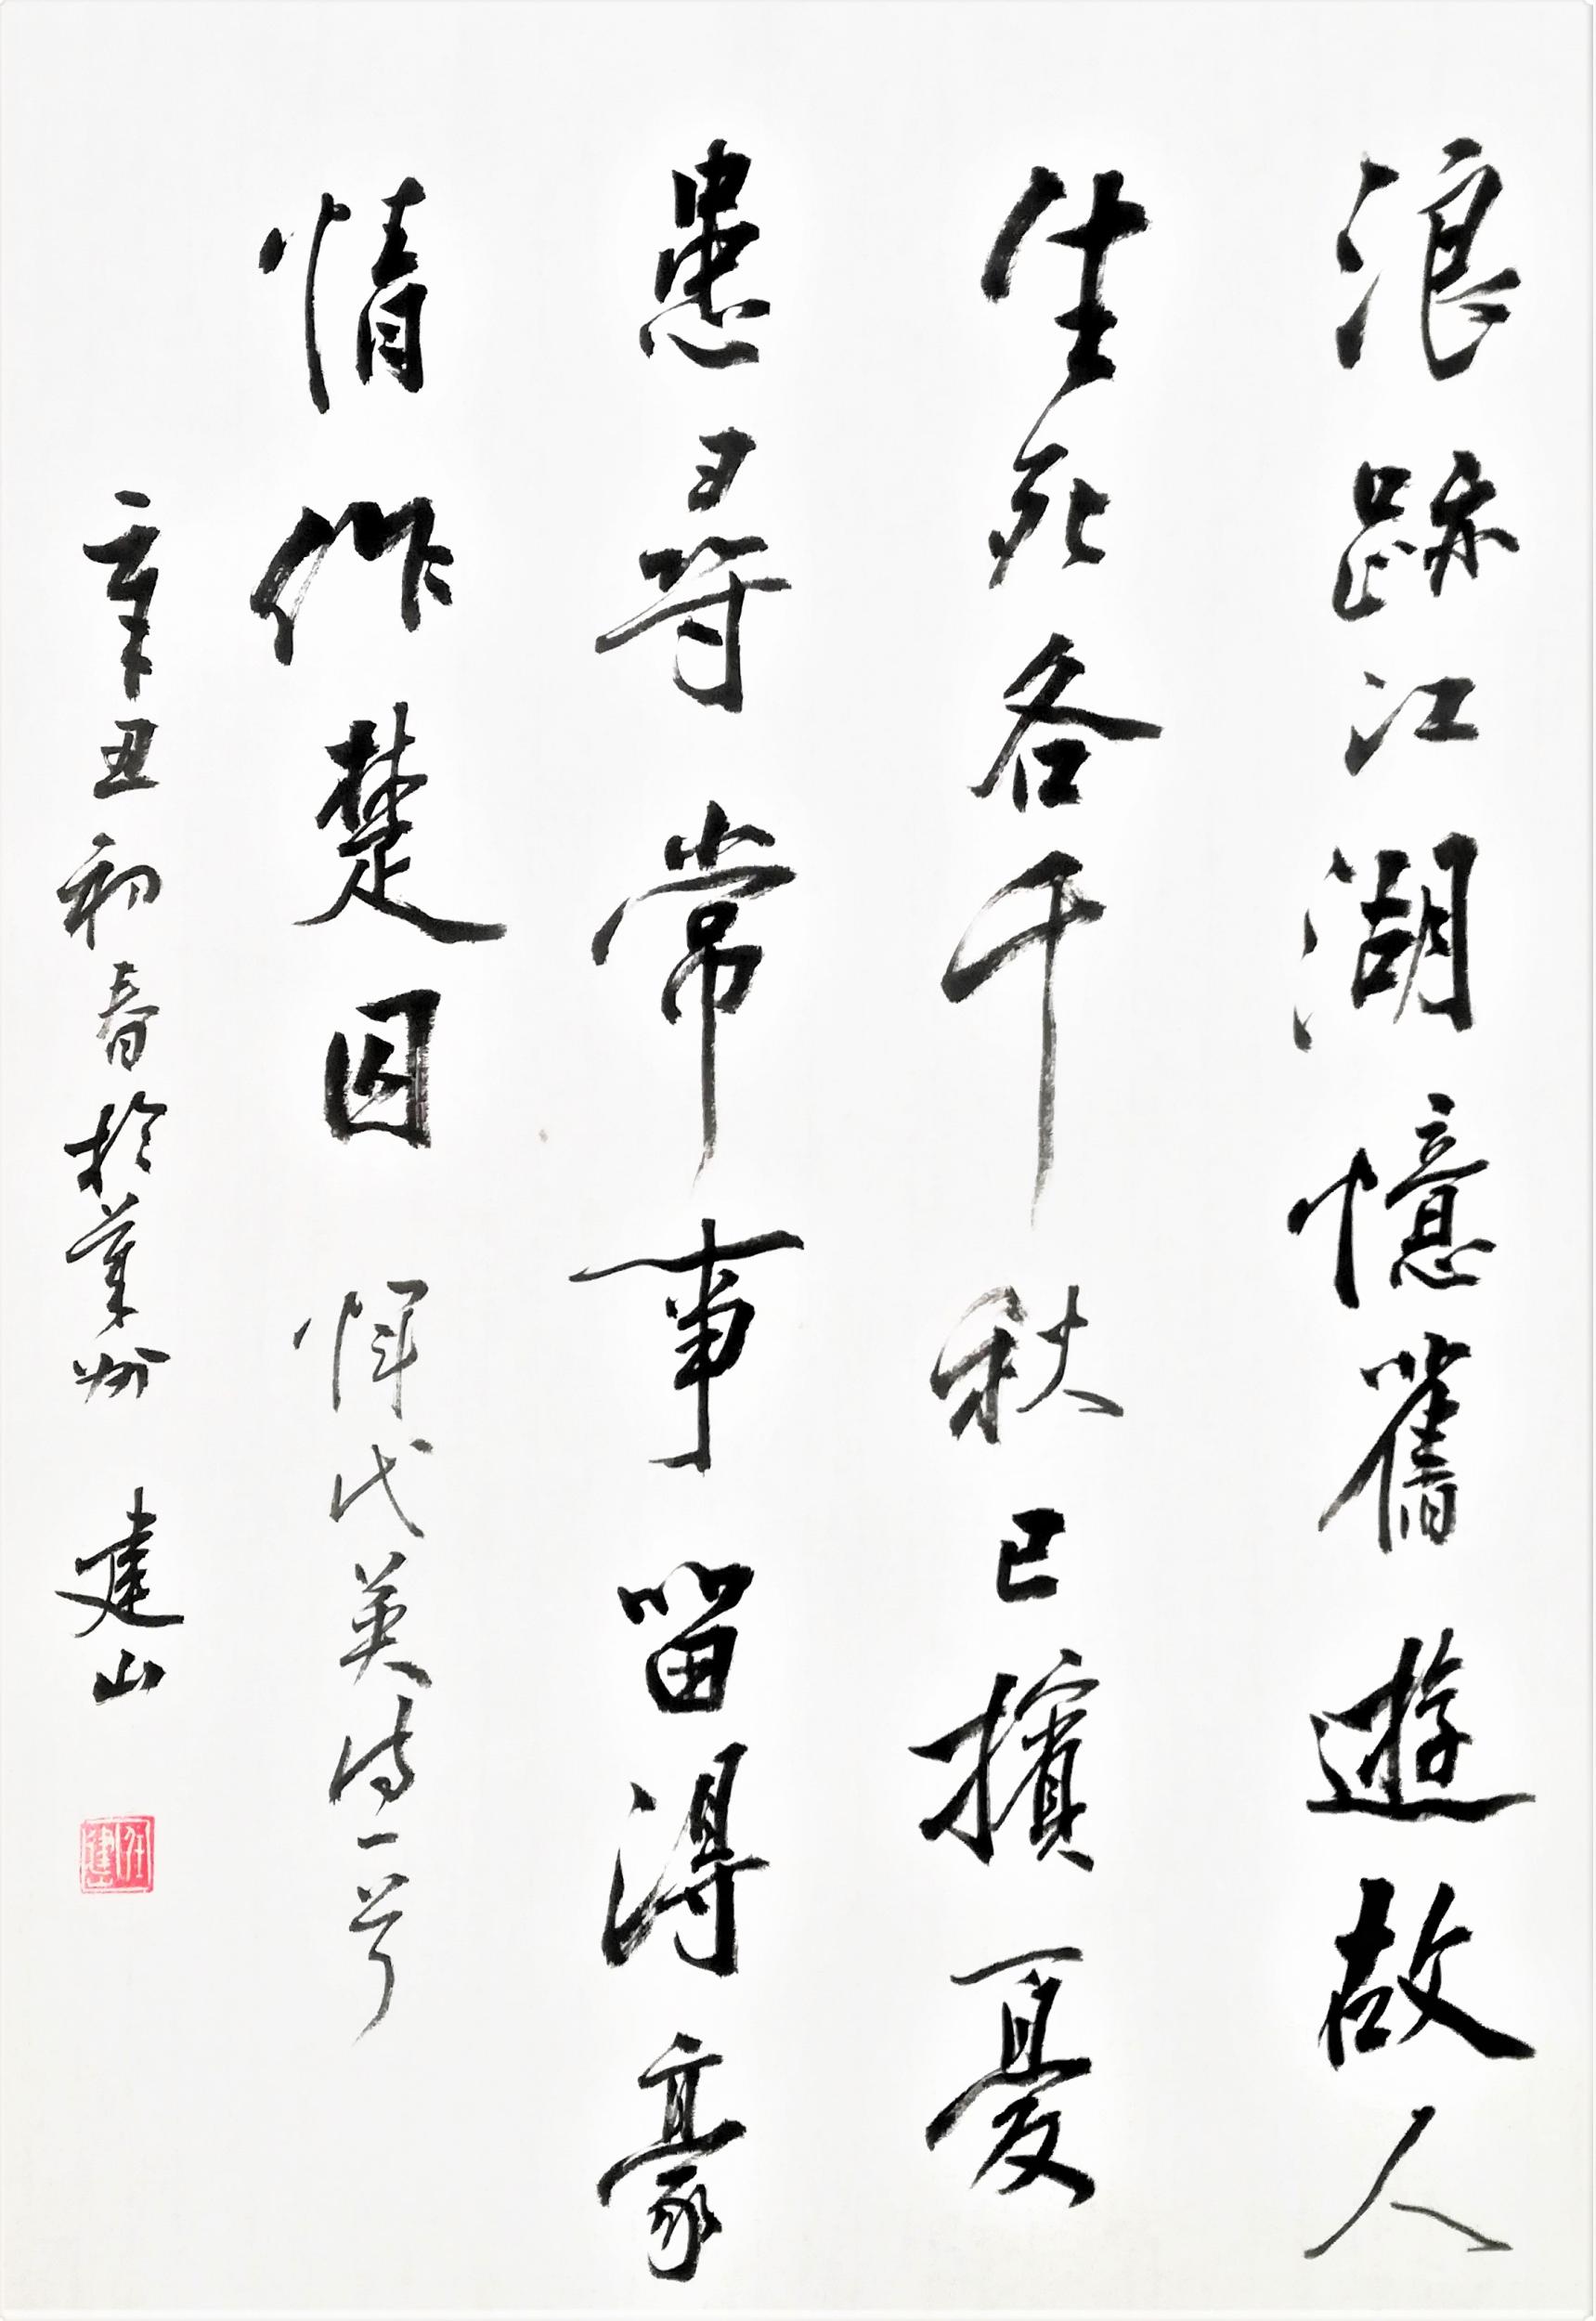 浪跡江湖憶舊遊故人
生死各千秋已擯憂
患尋常事留得豪
情作楚囚 惲代英詩一首
辛丑初春於萊州 建山
任建山